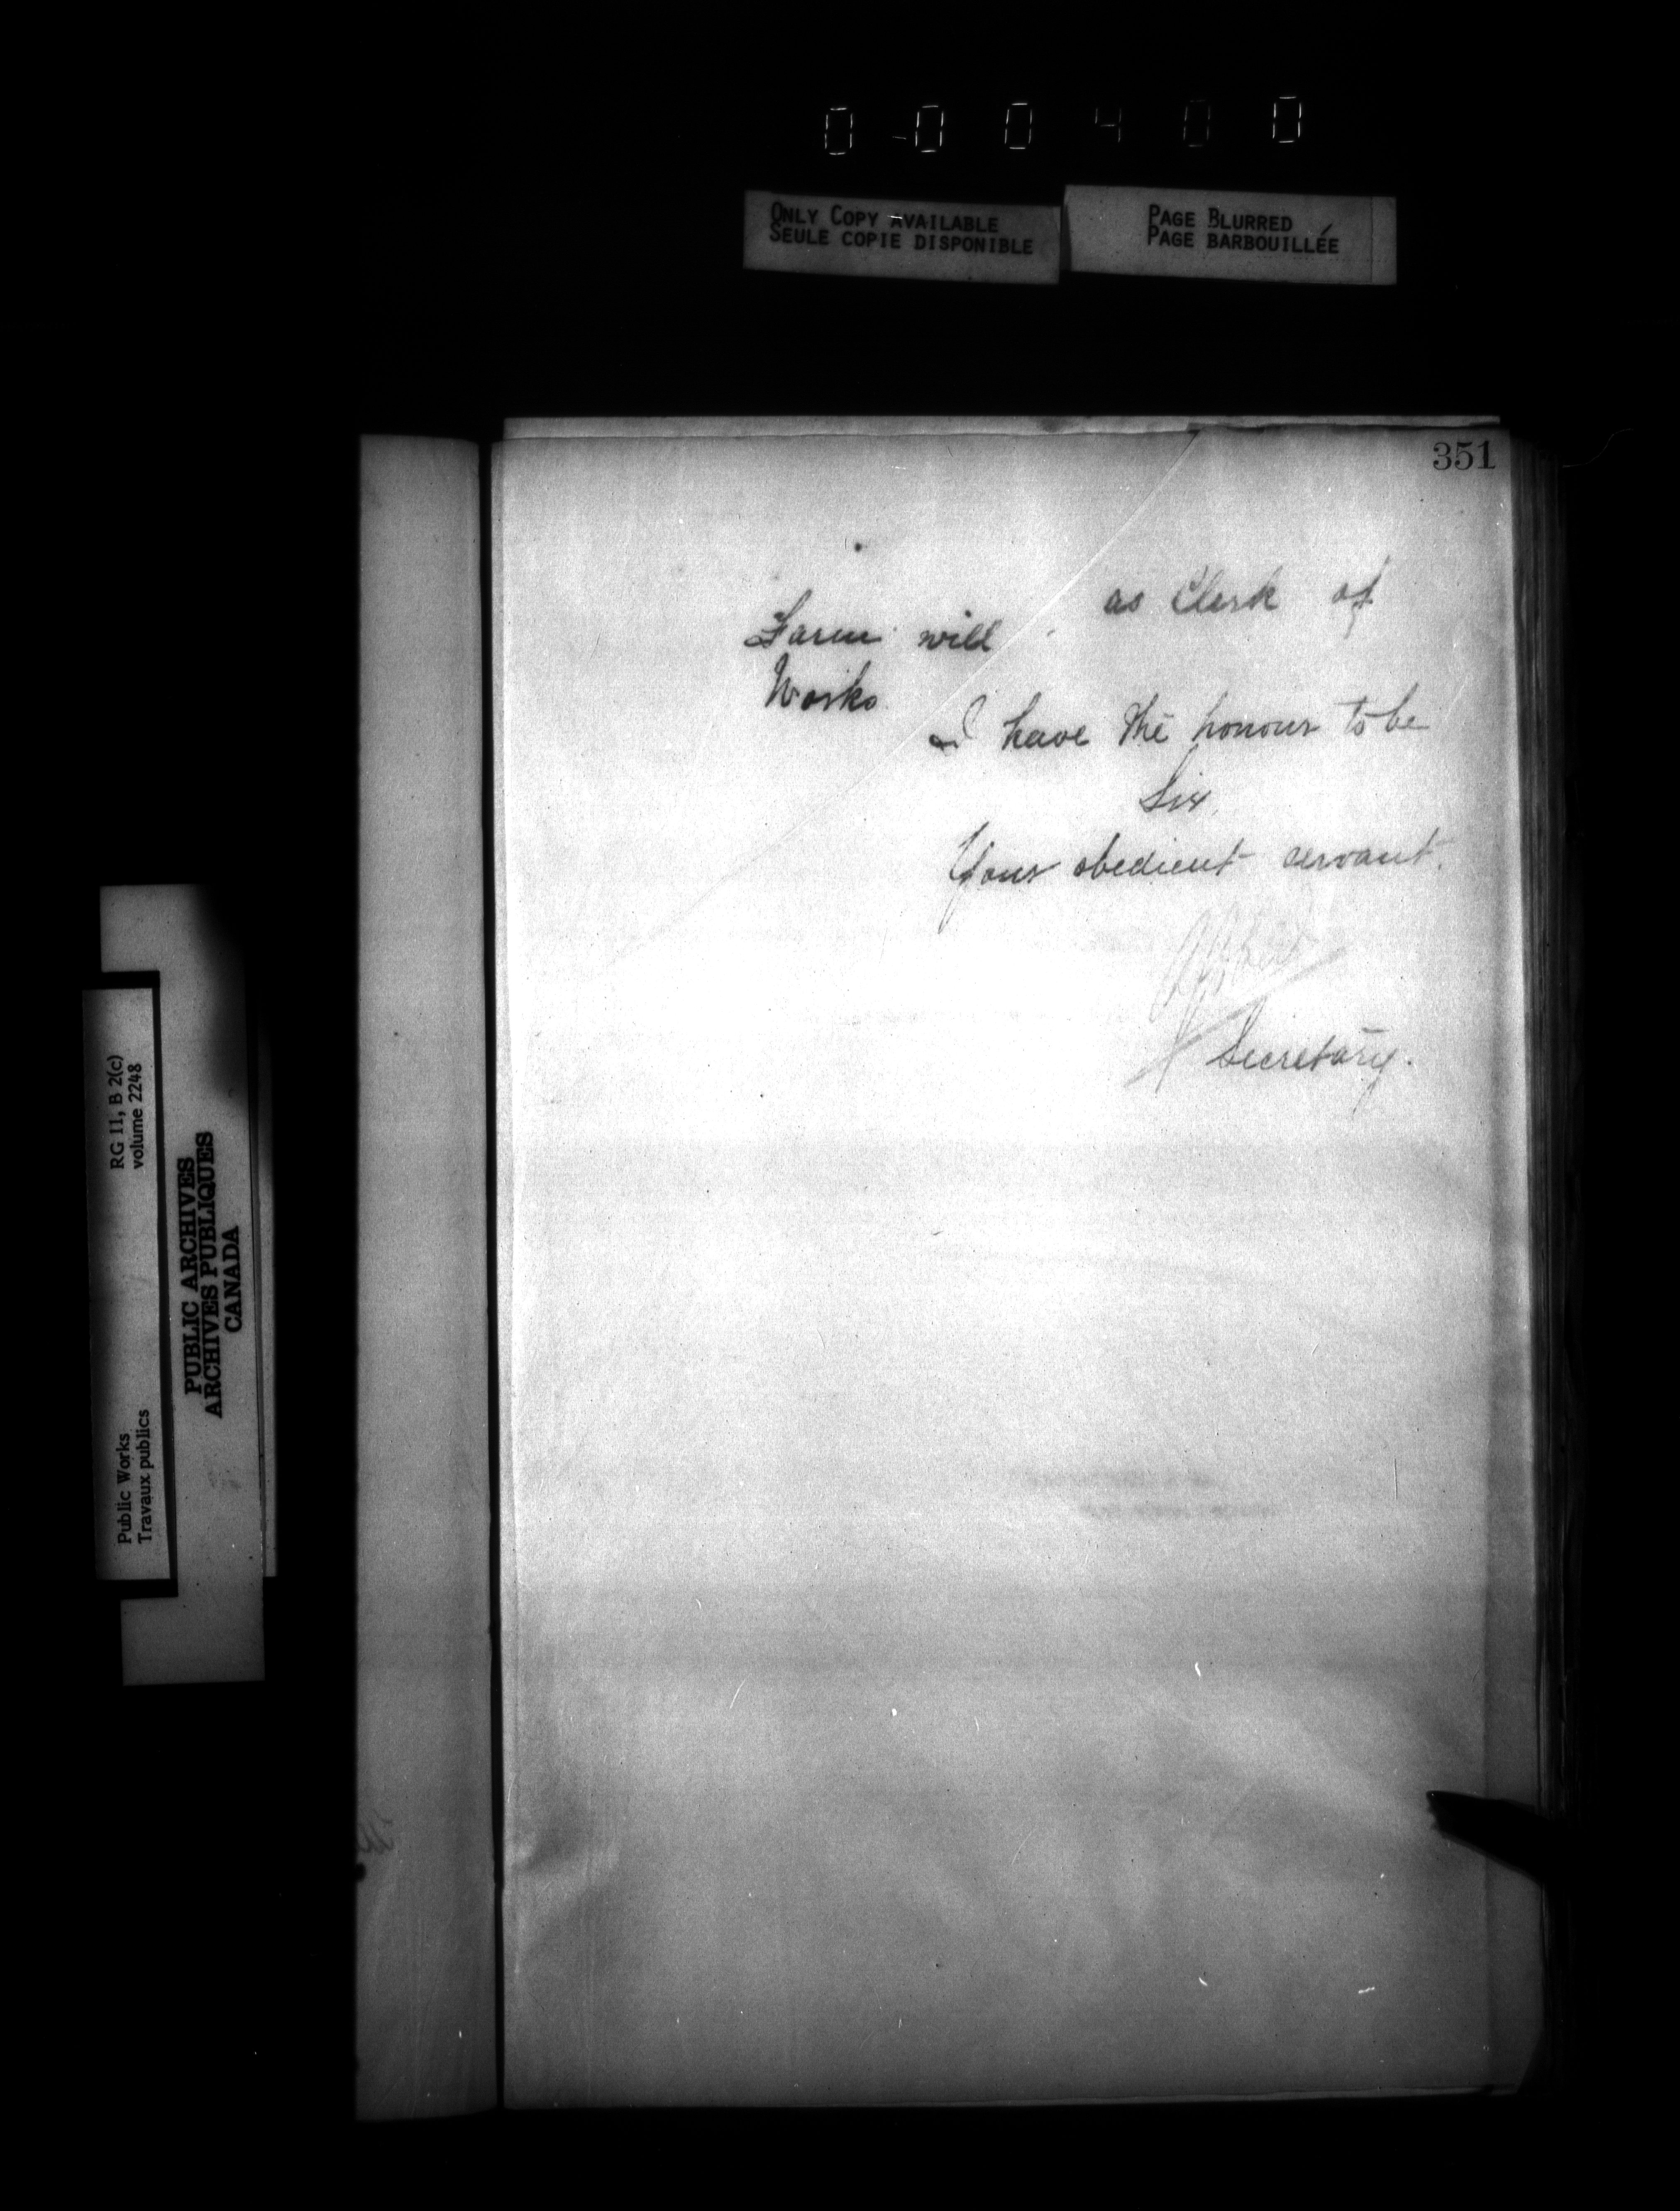 0 0 0 4 0 0
ONLY COPY AVAILABLE
SEULE COPIE DISPONIBLE
PAGE BLURRED
PAGE BARBOUILLÉE
351
Farm will as Clerk of
Works.
I have the honour to be
Sir,
Your obedient servant.
Secretary.
RG 11, B 2(c)
volume 2248
Public Works
Travaux publics
PUBLIC ARCHIVES
ARCHIVES PUBLIQUES
CANADA